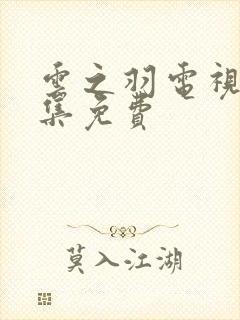 雲之羽電視
集免費
莫入江湖